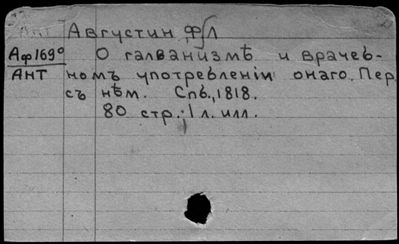 АНТ
Августин, Ф Л
Аф169⁰ О галванизмѣ и врачеб-
АНТ номъ употребленіи онаго. Пер
съ нѣм. Спб., 1818.
80 стр.; 1 л. илл.